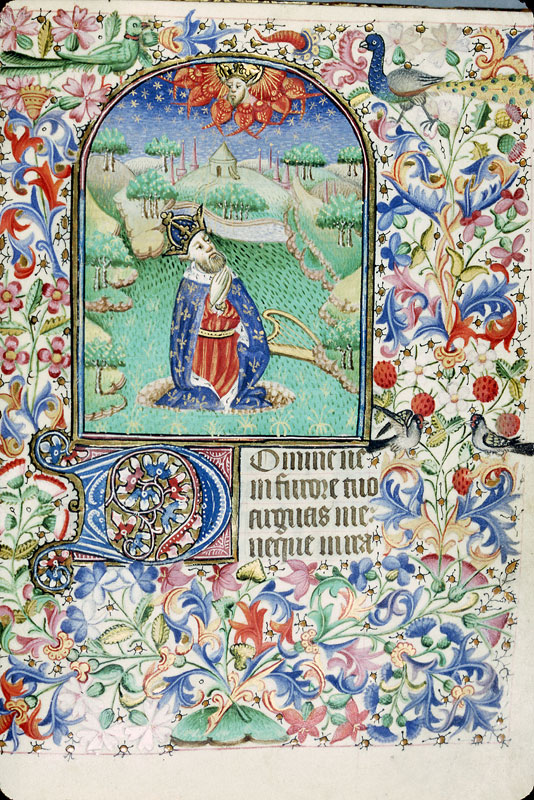 DOmine ne
in furore tuo
arguas me
neque in ira